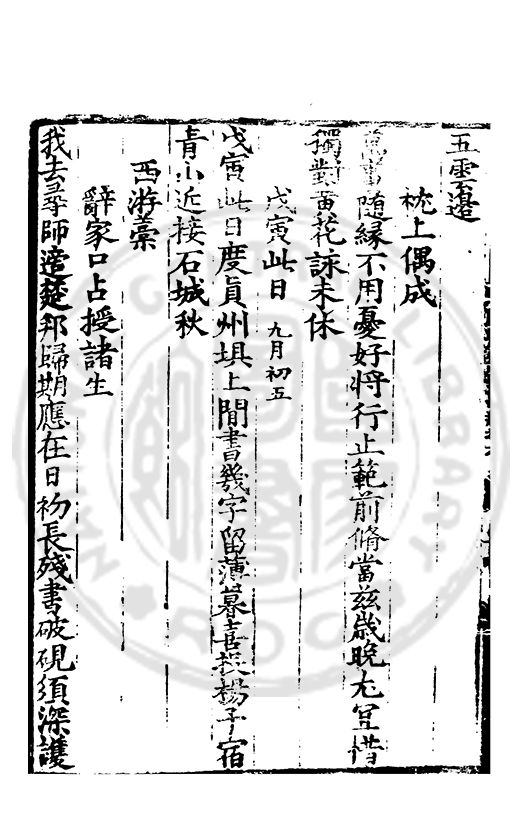 五雲邊
枕上偶成
萬事隨緣不用憂好將行止範前脩當茲歲晚尤宜惜
獨對黃花詠未休
戊寅此日九月初五
戊寅此日度真州埧上閒書幾字留薄暮喜投楊子宿
青山近接石城秋
西游稾
辭家口占授諸生
我去尋師適楚邦歸期應在日初長殘書破硯須深護